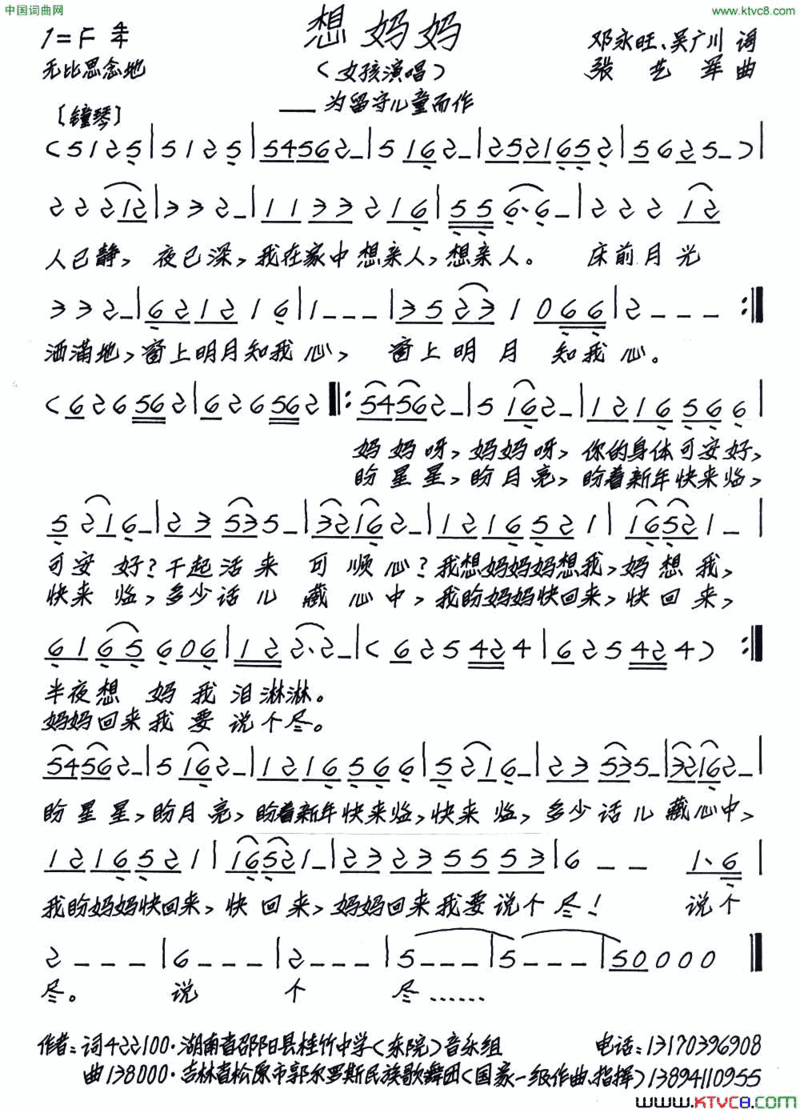 中国词曲网
www.ktvc8.com
想妈妈
1=F 4/4
邓永旺、吴广川 词
无比思念地
(女孩演唱)
张艺军 曲
——为留守儿童而作
〔钟琴〕
(5 1 2 5|5 1 2 5|5456 2 -|5 16 2 -|252165 2|5 6 2 5 -)|
2 2 2 12|3 3 2 -|11 33 2 16|55 6·6 -|2 2 2 12|
人已静,夜已深,我在家中想亲人,想亲人。 床前月光
3 3 2 -|62 12 1 6|1 - - -|35 23 1 066|2 - - - :‖
洒满地,窗上明月知我心, 窗上明月 知我心。
(6 2 6 562|6 2 6 562‖: 5456 2 -|5 16 2 -|12 16 56 6|
妈妈呀,妈妈呀,你的身体可安好,
盼星星,盼月亮,盼着新年快来临,
5 2 16 -|2 3 535 -|32 16 2 -|12 16 52 1|1652 1 -|
可安 好?干起活来 可顺心?我想妈妈妈想我,妈想我,
快来 临,多少话儿 藏心中,我盼妈妈快回来,快回来,
61 65 606|12 2·2 -|(6 2 5 424|6 2 5 424) :‖
半夜想 妈我泪淋淋。
妈妈回来我要说个尽。
5456 2 -|5 16 2 -|12 16 56 6|5 2 16 -|2 3 535 -|3216 2 -|
盼星星,盼月亮,盼着新年快来临,快来 临,多少话儿藏心中,
12 16 52 1|1652 1 -|23 23 55 53|6 - - 1·6|
我盼妈妈快回来,快回来,妈妈回来我要说个尽! 说个
2 - - -|6 - - -|2 - - -|5 - - -|5 - - -|50000‖
尽。 说 个 尽……
作者:词422100·湖南省邵阳县桂竹中学(东院)音乐组 电话:13170396908
曲138000·吉林省松原市郭尔罗斯民族歌舞团(国家一级作曲、指挥)13894110955
www.KTVC8.COM